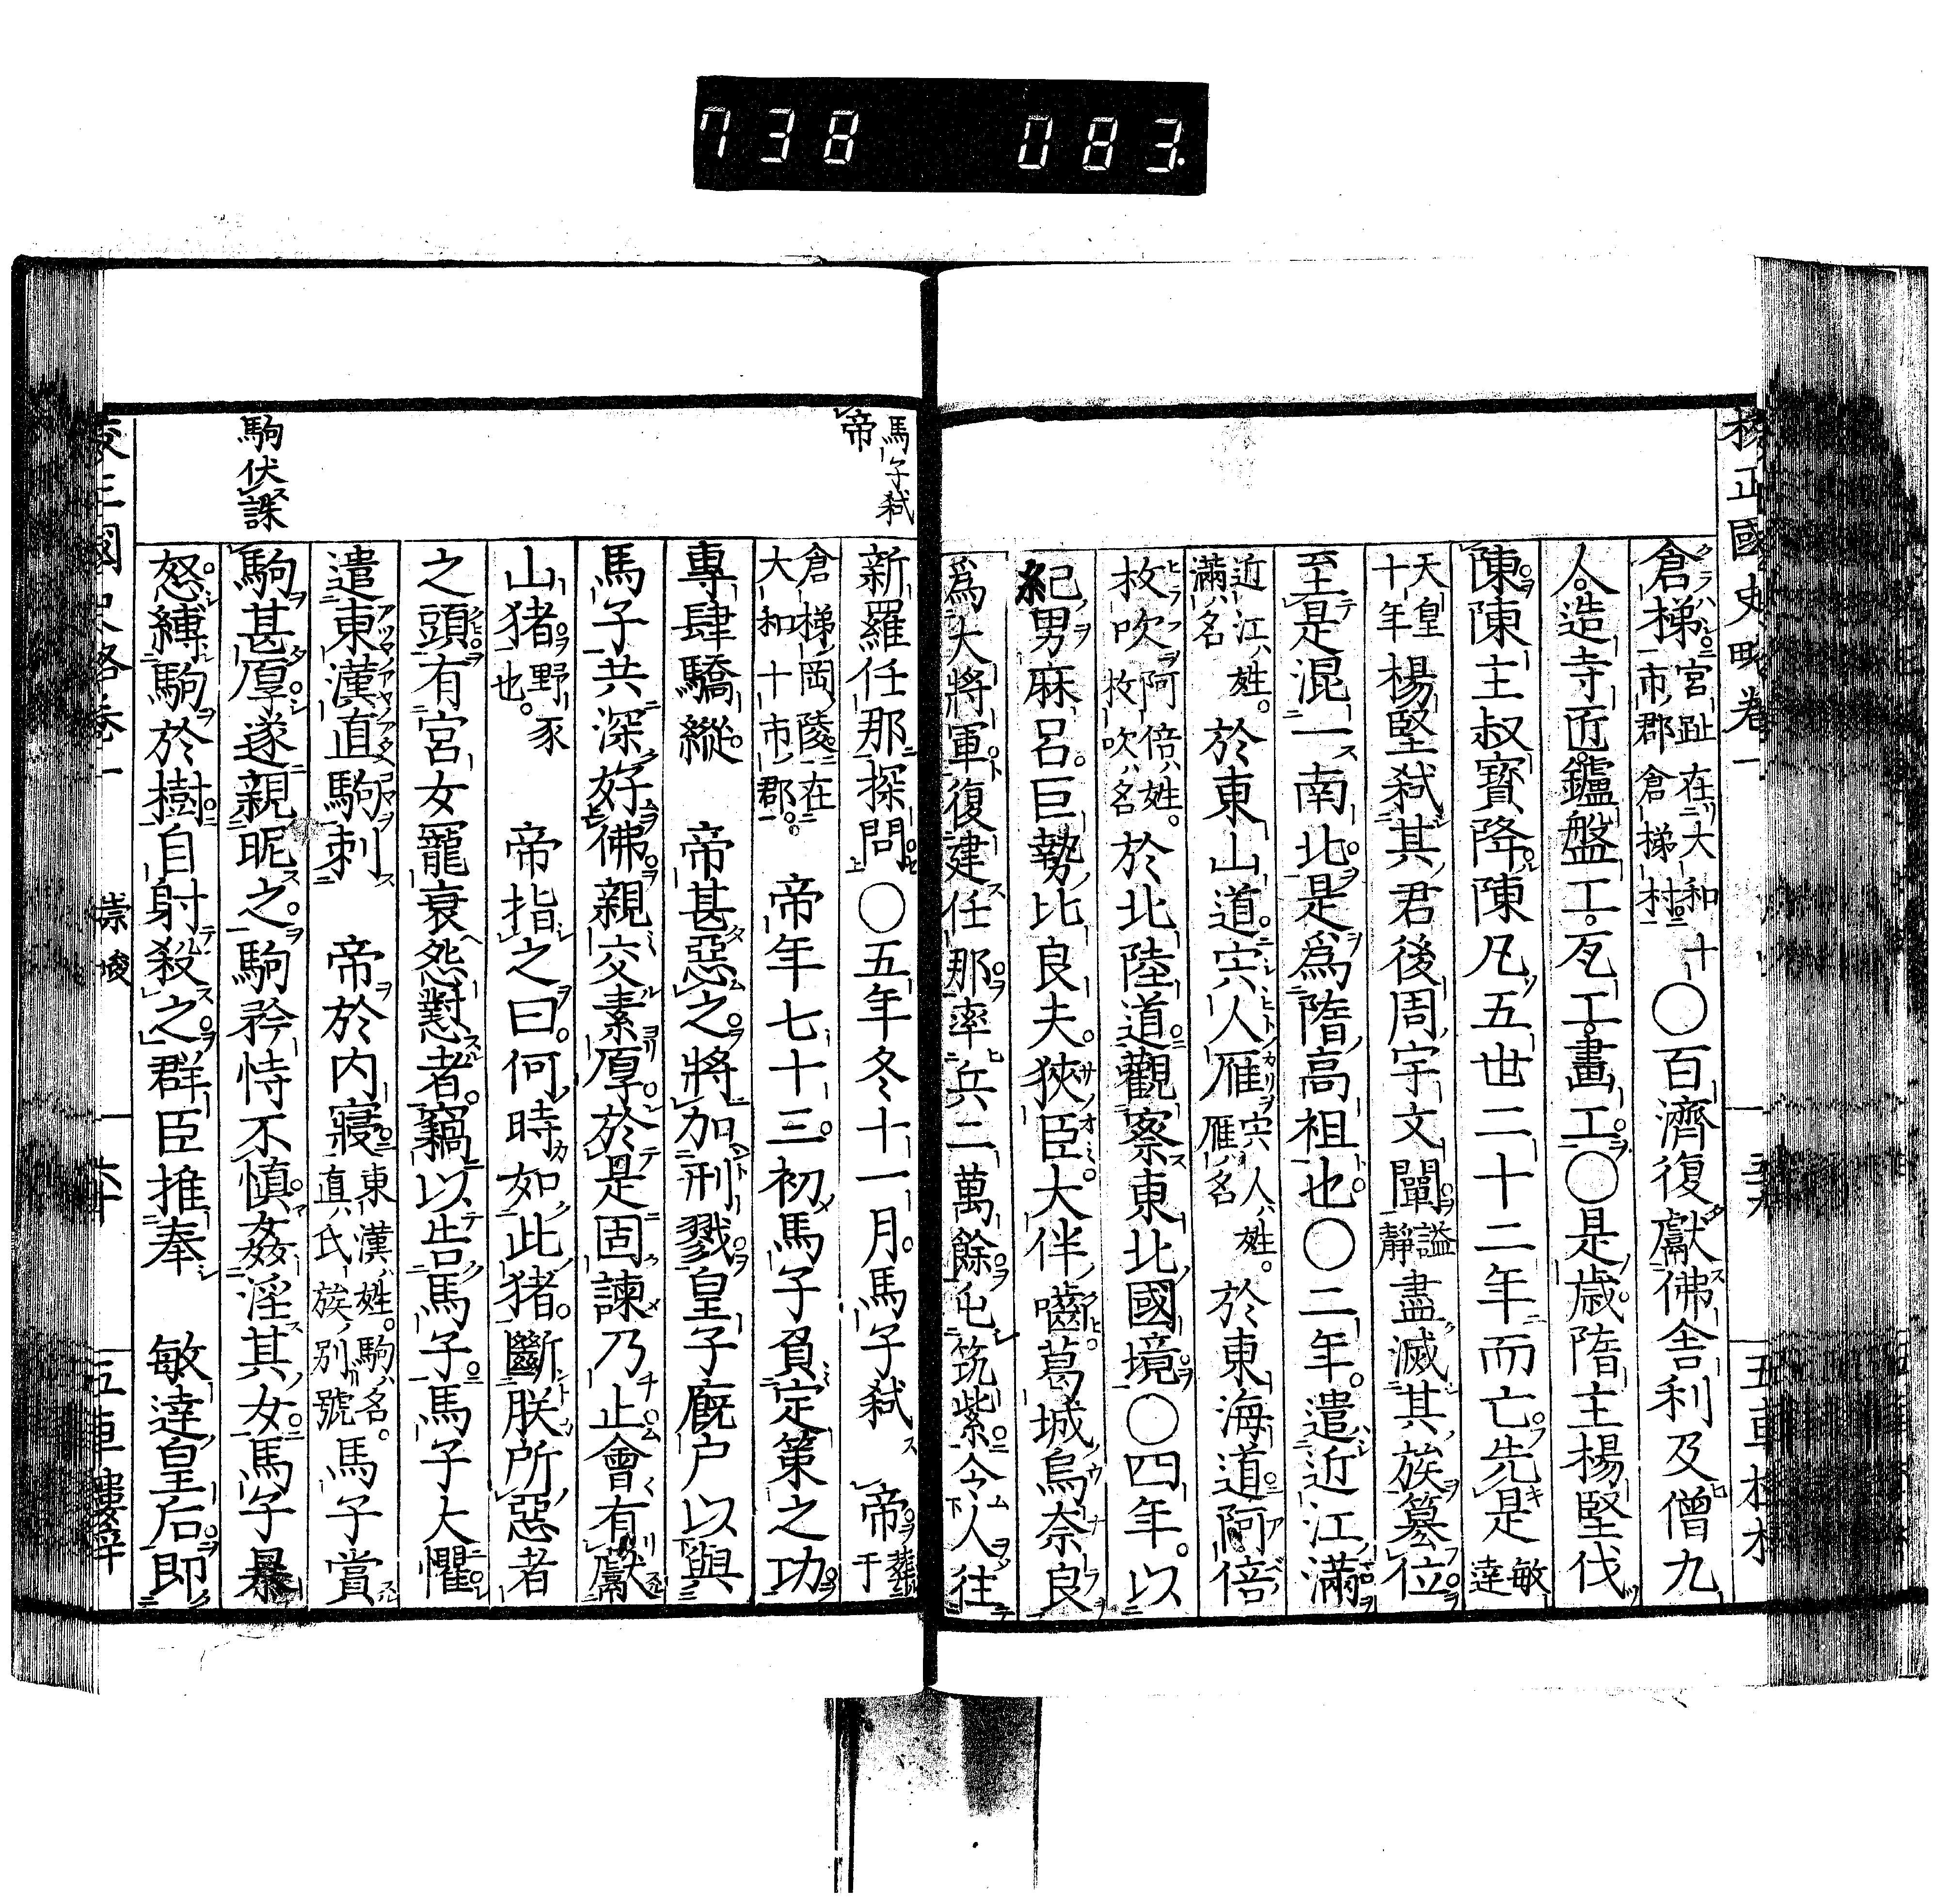 738 083
校正國史略卷一
五車樓梓
倉梯宮趾在大和十市郡倉梯村○百濟復獻佛舍利及僧九
人造寺匠鑪盤工瓦工畫工○是歲隋主楊堅伐
陳陳主叔寶降陳凡五世二十二年而亡先是敏達
天皇十年楊堅弒其君後周宇文闡諡靜盡滅其族簒位
至是混一南北是爲隋高祖也○二年遣近江滿
近江姓滿名於東山道宍人雁宍人姓雁名於東海道阿倍
枚吹阿倍姓枚吹名於北陸道觀察東北國境○四年以
紀男麻呂巨勢比良夫狹臣大伴嚙葛城烏奈良
爲大將軍復建任那率兵二萬餘屯筑紫令人往
馬子弒帝
新羅任那探問○五年冬十一月馬子弒 帝葬于
倉梯岡陵在大和十市郡 帝年七十三初馬子負定策之功
專肆驕縱 帝甚惡之將加刑戮皇子廐戶以與
馬子共深好佛親交素厚於是固諫乃止會有獻
山猪野豕也 帝指之曰何時如此猪斷朕所惡者
之頭有宮女寵衰怨懟者竊以告馬子馬子大懼
遣東漢直駒刺 帝於內寢東漢姓駒名直氏族別號馬子賞
駒伏誅
駒甚厚遂親昵之駒矜恃不愼姦淫其女馬子暴
怒縛駒於樹自射殺之群臣推奉 敏達皇后即
崇峻